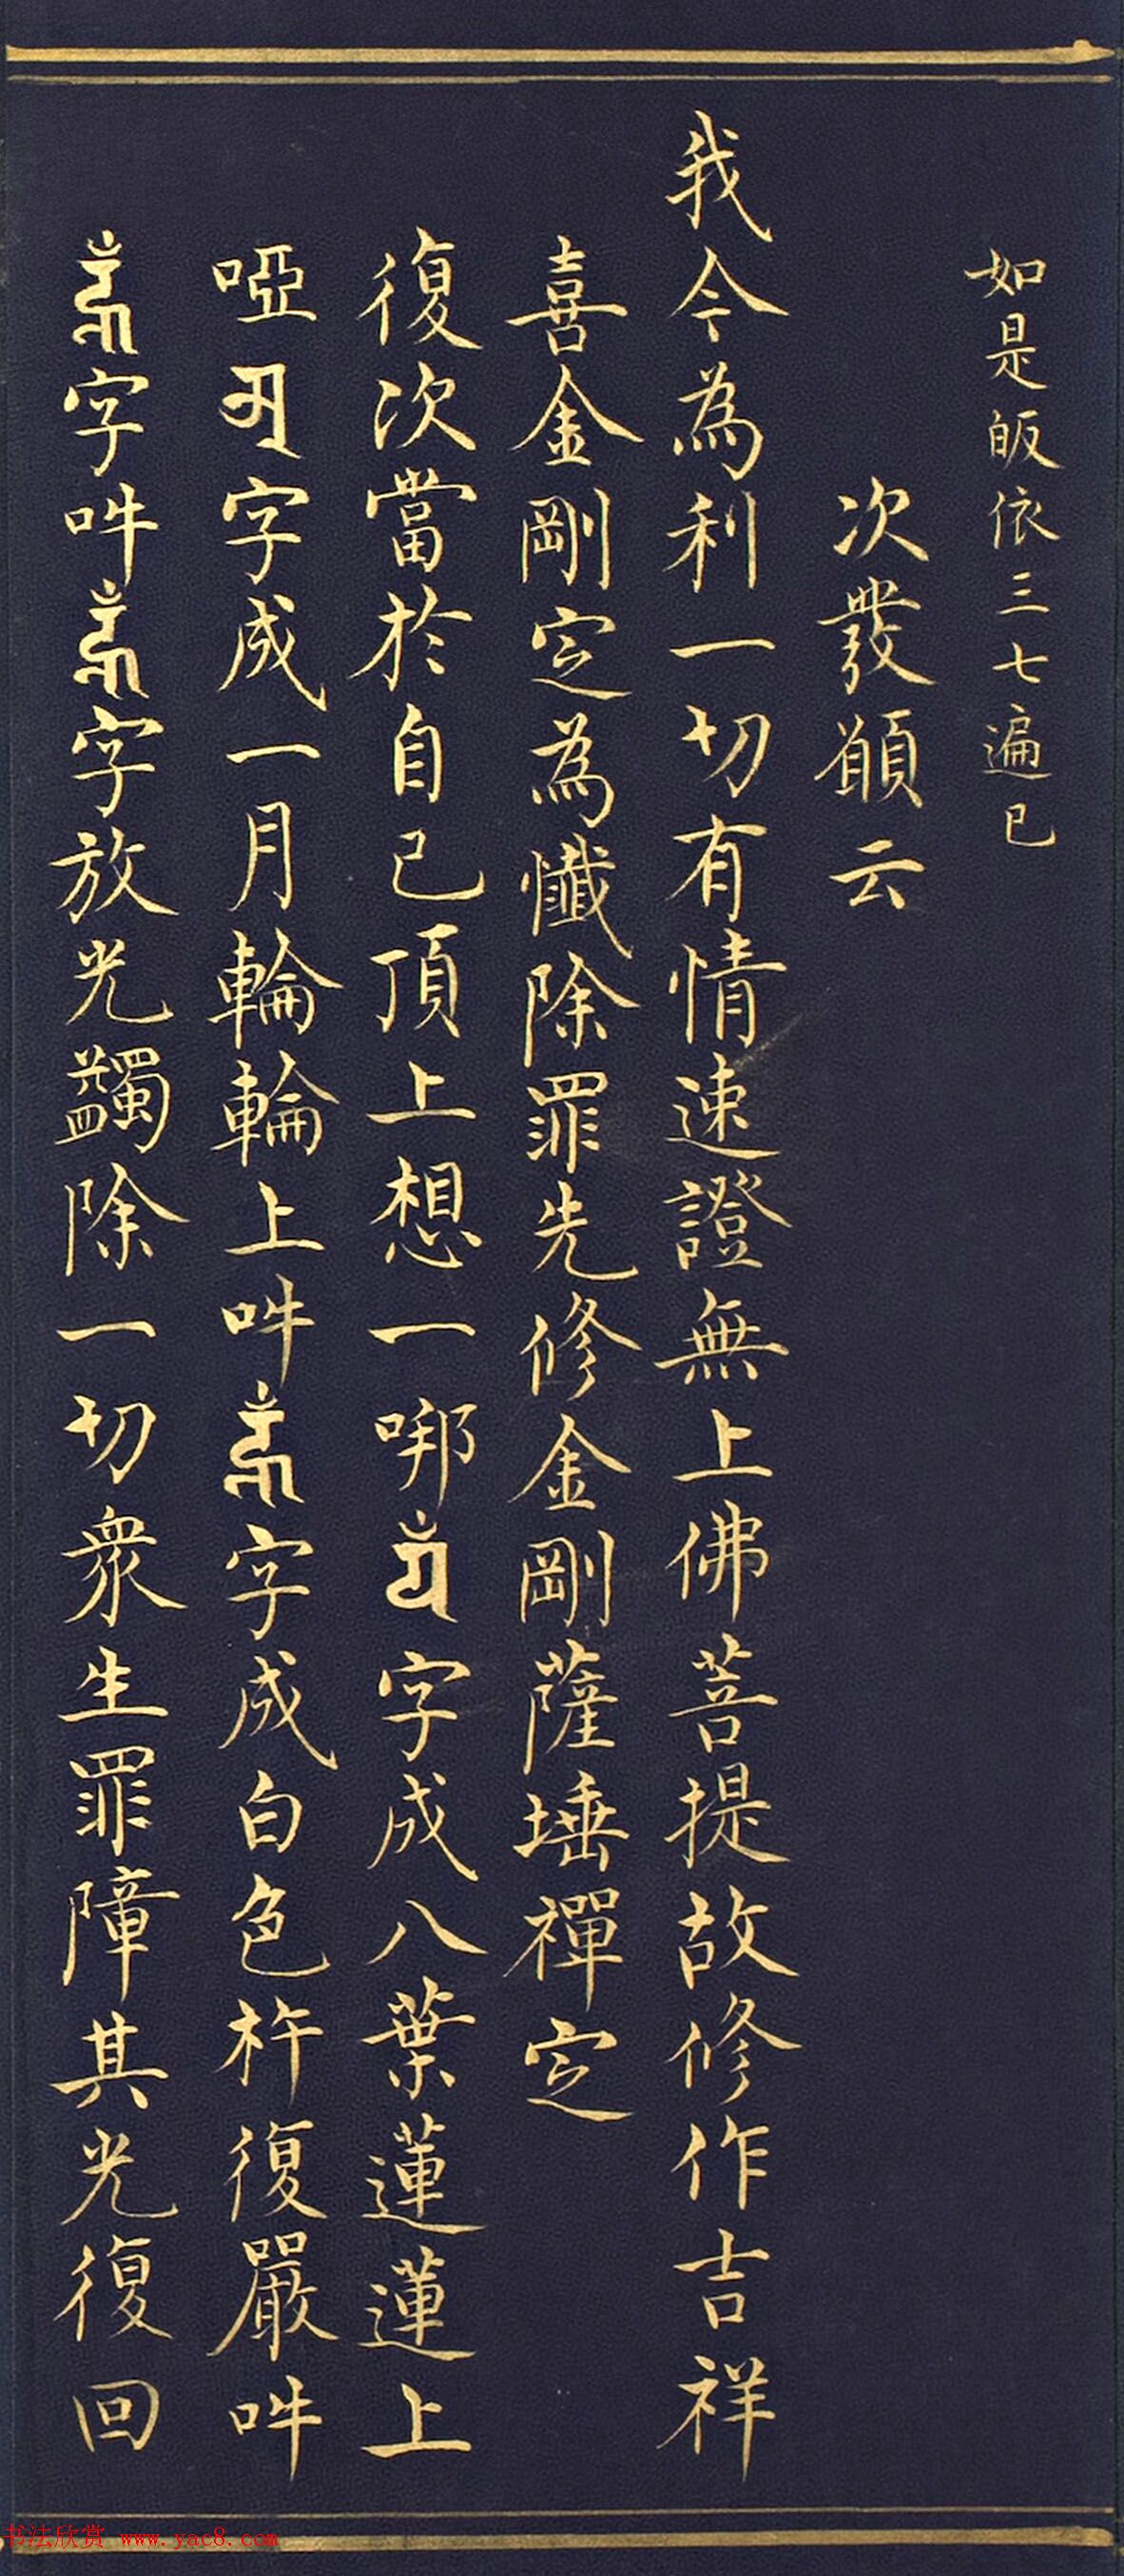 如是皈依三七遍已
次發願云
我今為利一切有情速證無上佛菩提故修作吉祥
喜金剛定為懺除罪先修金剛薩埵禪定
復次當於自己頂上想一㖿字成八葉蓮蓮上
啞字成一月輪輪上吽字成白色杵復嚴吽
字吽字放光蠲除一切眾生罪障其光復回
书法欣赏 www.yac8.com